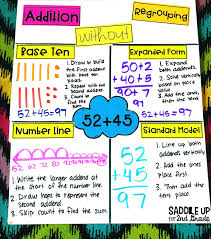 Addition
without
Regrouping
Base Ten
1. Draw or build
the first addend
with base ten
2. Repeat with the
second addend.
3. Count to
find the
sum.
52+46=97
Expanded Form
50+2
+40+5
90+7
97
1. Expand
both
addends.
2. Stack vertically
based on place
value.
3. Add the
ones, then
the tens.
52+45
Number line
52 62 72 82 92
1. Write the larger addend at
the start of the number line.
2. Draw hops to represent the
second addend.
3. Skip count to find the sum.
Standard Model
52
+45
97
1. Line up both
addends vertically.
2. Add the ones
place first.
3. Then add the
tens place.
SADDLE UP
for 2nd Grade